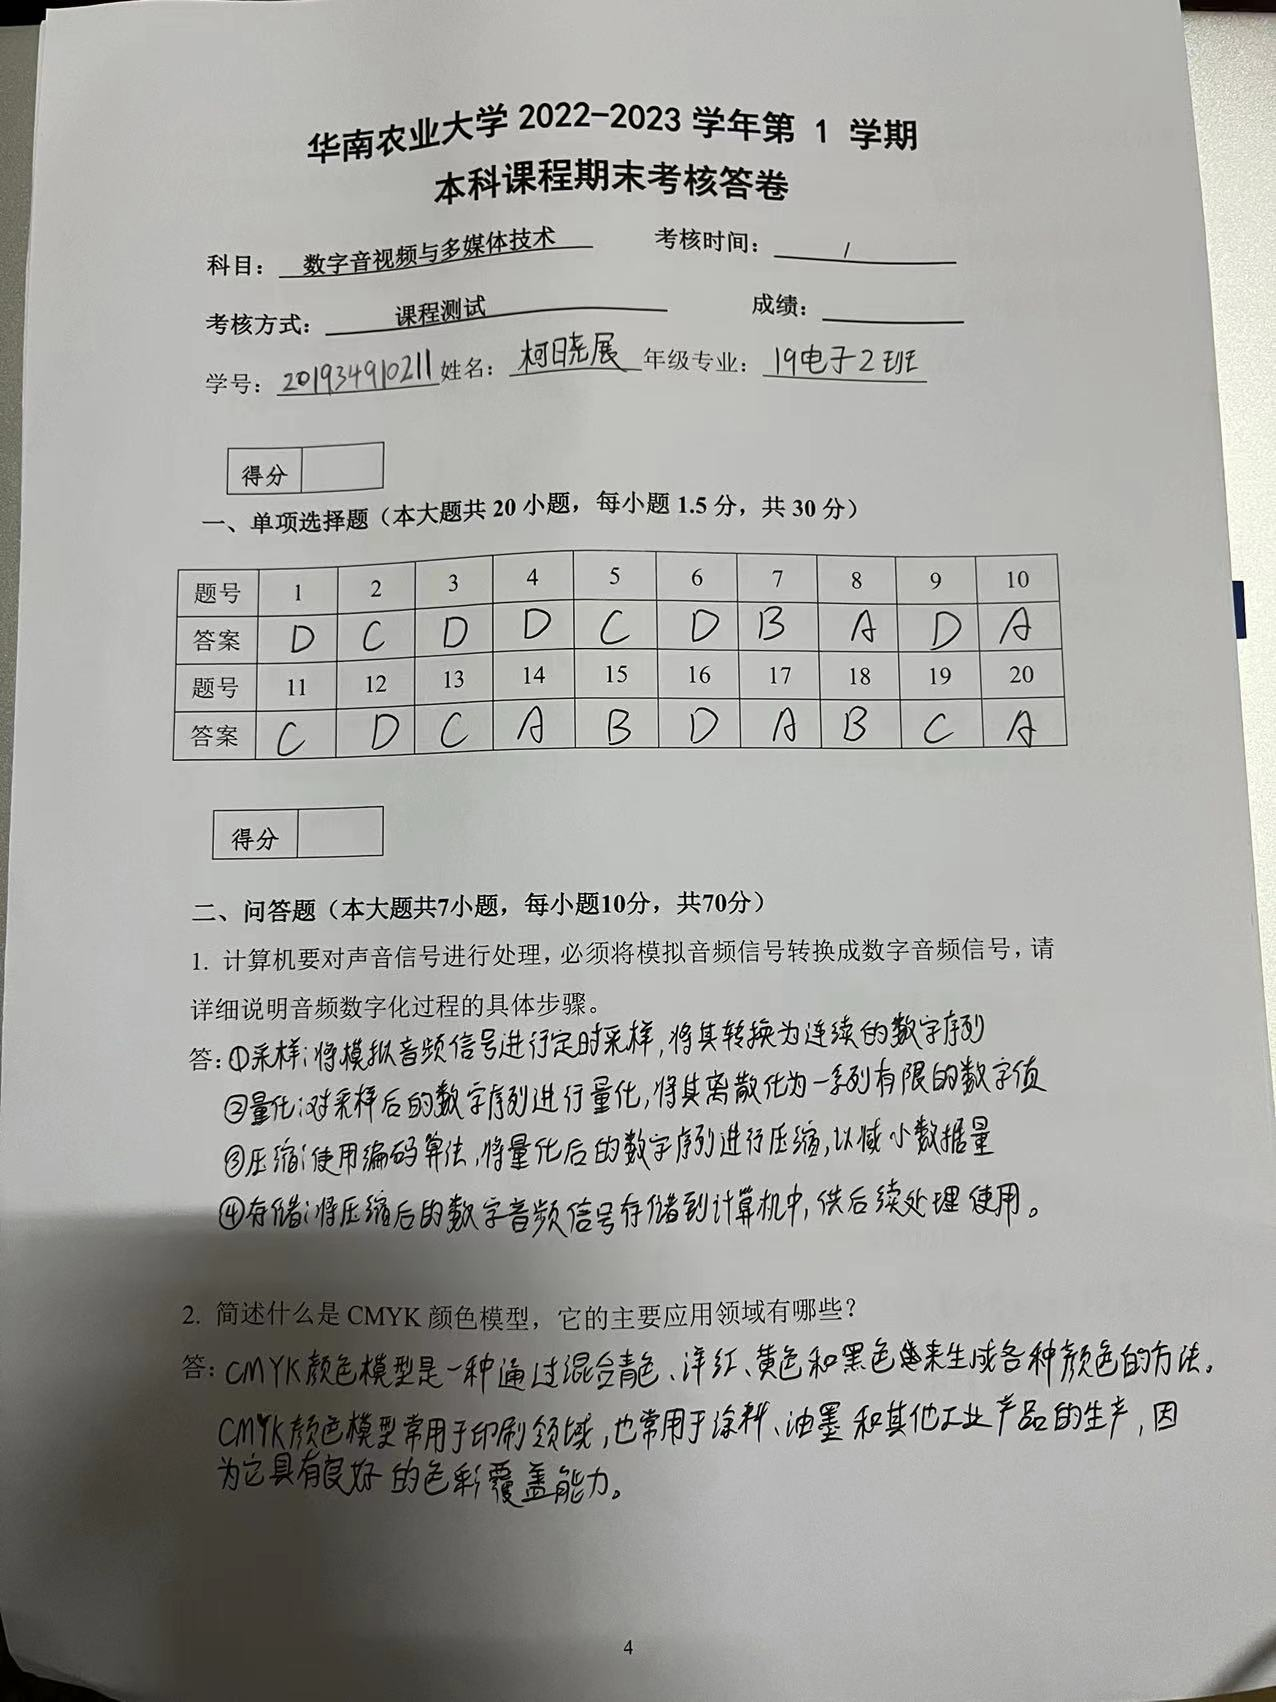 华南农业大学 2022-2023 学年第 1 学期
本科课程期末考核答卷
科目： 数字音视频与多媒体技术 考核时间： /
考核方式： 课程测试 成绩：
学号： 201934910211 姓名： 柯晓展 年级专业： 19电子2班
得分
一、单项选择题（本大题共 20 小题，每小题 1.5 分，共 30 分）
题号 1 2 3 4 5 6 7 8 9 10
答案 D C D D C D B A D A
题号 11 12 13 14 15 16 17 18 19 20
答案 C D C A B D A B C A
得分
二、问答题（本大题共7小题，每小题10分，共70分）
1. 计算机要对声音信号进行处理，必须将模拟音频信号转换成数字音频信号，请
详细说明音频数字化过程的具体步骤。
答：①采样：将模拟音频信号进行定时采样，将其转换为连续的数字序列
②量化：对采样后的数字序列进行量化，将其离散化为一系列有限的数字值
③压缩：使用编码算法，将量化后的数字序列进行压缩，以减小数据量
④存储：将压缩后的数字音频信号存储到计算机中，供后续处理使用。
2. 简述什么是 CMYK 颜色模型，它的主要应用领域有哪些？
答：CMYK颜色模型是一种通过混合青色、洋红、黄色和黑色来生成各种颜色的方法。
CMYK颜色模型常用于印刷领域，也常用于涂料、油墨和其他工业产品的生产，因
为它具有良好的色彩覆盖能力。
4